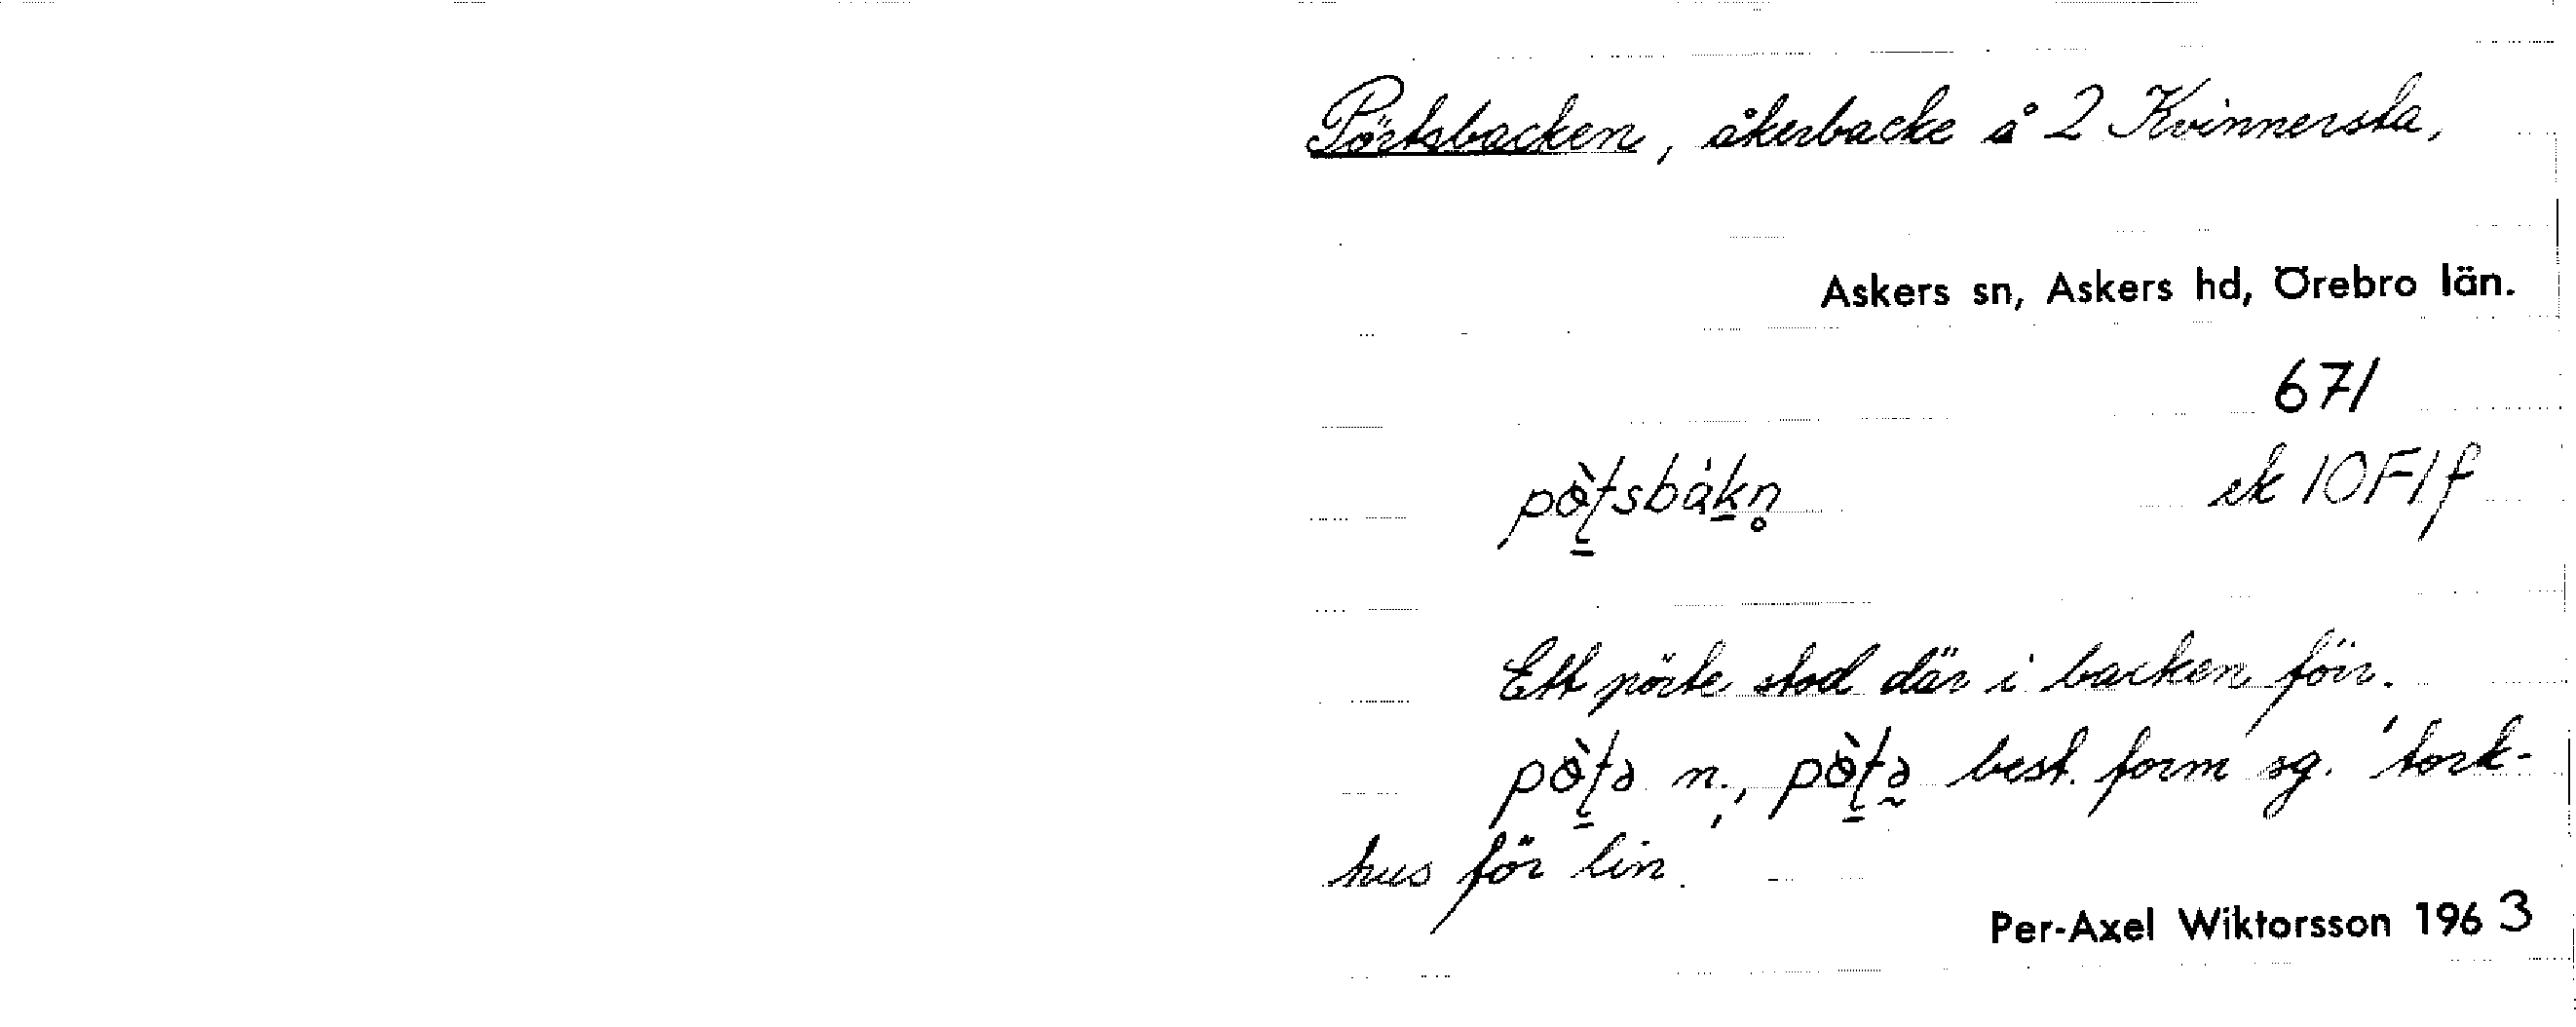 Pörtsbacken, åkerbacke å 2 Kvinnersta,
Askers sn, Askers hd, Örebro län.
671
ek 10F1f
Ett pörte stod där i backen förr.
n., best. form sg. 'tork-
hus för lin'.
Per-Axel Wiktorsson 1963